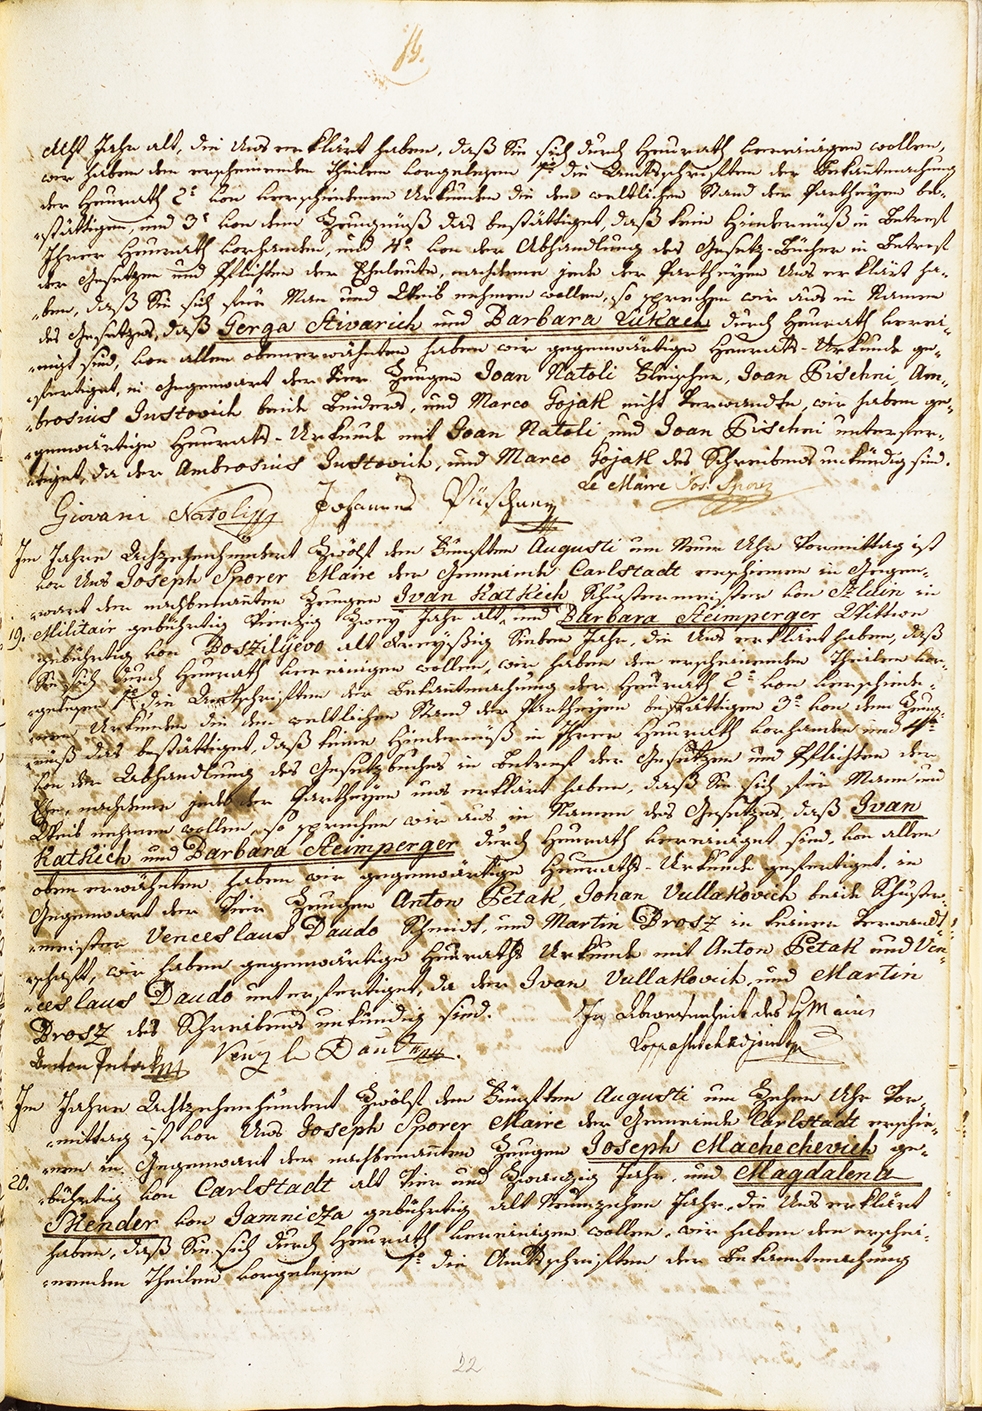 Acht Jahr alt, die Uns erklärt haben, daß Sie sich durch Heurath vereinigen wollen,
wir haben den erscheinenden Theilen vorgelesen 1º die Amtsschriften der Bekantmachung
der Heurath 2º von verschiedenen Urkunden die den weltlichen Stand der Partheyen be-
stättigen, und 3º von dem Zeugnüß das bestättiget, daß kein Hindernüß in Betref
Ihrer Heurath vorhanden, und 4º von der Abhandlung des Gesetz-Bücher in Betref
der Gesetzen und Pflichten der Eheleute, nachdeme jede der Partheyen Uns erklärt ha-
ben, daß Sie sich für Man und Weib nehmen wollen, so sprechen wir aus in Namen
des Gesetzes, daß Gerga Stivarich und Barbara Vukach durch Heurath verei-
nigt sind, von allen obenerwähnten haben wir gegenwärtige Heuraths-Urkunde ge-
fertiget, in Gegenwart der Vier Zeugen Joan Natoli Fleischer, Joan Pischni, Am-
brosius Justovich beide Binders, und Marco Gojak nicht Verwandte, wir haben ge-
genwärtige Heuraths-Urkunde mit Joan Natoli und Joan Pischni unterfer-
tiget, da der Ambrosius Justovich, und Marco Gojak des Schreibens unkündig sind.
Le Maire Jos. Sporer
Giovani Natoli Johannes Püschny
Im Jahre Achtzehenhundert Zwölf den Fünften Augusti um Neun Uhr Vormittag ist
vor Uns Joseph Sporer Maire der Gemeinde Carlstadt erschienen in Gegen-
wart der nachbenanten Zeugen Ivan Katkich Schustermeister von Szluin in
19. Militair gebührtig Vierzig Zwey Jahr alt, und Barbara Steimperger Wittwe
gebührtig von Boszilyevo alt Dreyßig Sieben Jahr, die Uns erklärt haben, daß
Sie sich durch Heurath vereinigen wollen, wir haben den erscheinenden Theilen vor-
gelesen 1º die Amtsschriften der Bekantmachung der Heurath 2º von verschiede-
nen Urkunden die den weltlichen Stand der Partheyen bestättigen 3º von dem Zeug-
nüß das bestättiget, daß keine Hindernüß in Ihrer Heurath vorhanden und 4º
von der Abhandlung des Gesetzbuches in Betref der Gesetzen und Pflichten der
Ehe, nachdeme jede der Partheyen uns erklärt haben, daß Sie sich für Mann und
Weib nehmen wollen, so sprechen wir aus in Namen des Gesetzes, daß Ivan
Katkich und Barbara Steimperger durch Heurath vereiniget sind, von allen
oben erwähnten haben wir gegenwärtige Heuraths-Urkunde gefertiget, in
Gegenwart der Vier Zeugen Anton Petak, Johan Vullakovich beide Schuster-
meister Venceslaus Daudo Schmidt, und Martin Drosz in keiner Verwandt-
schaft, wir haben gegenwärtige Heuraths Urkunde mit Anton Petak und Ven-
ceslaus Daudo unterfertiget, da der Ivan Vullakovich, und Martin
Drosz des Schreibens unkündig sind. In Abwesenheit des H Maire
Anton Petack Venzl Daut
Im Jahre Achtzehenhundert Zwölf den Fünften Augusti um Zehen Uhr Vor-
mittag ist vor Uns Joseph Sporer Maire der Gemeinde Carlstadt erschie-
nen in Gegenwart der nachbenanten Zeugen Joseph Machechevich ge-
20. bührtig von Carlstadt alt Vier und Zwanzig Jahr, und Magdalena
Skender von Jamnicza gebührtig alt Neunzehen Jahr, die Uns erklärt
haben, daß Sie sich durch Heurath vereinigen wollen, wir haben den erschei-
nenden Theilen vorgelesen 1º die Amtsschriften der Bekantmachung
22